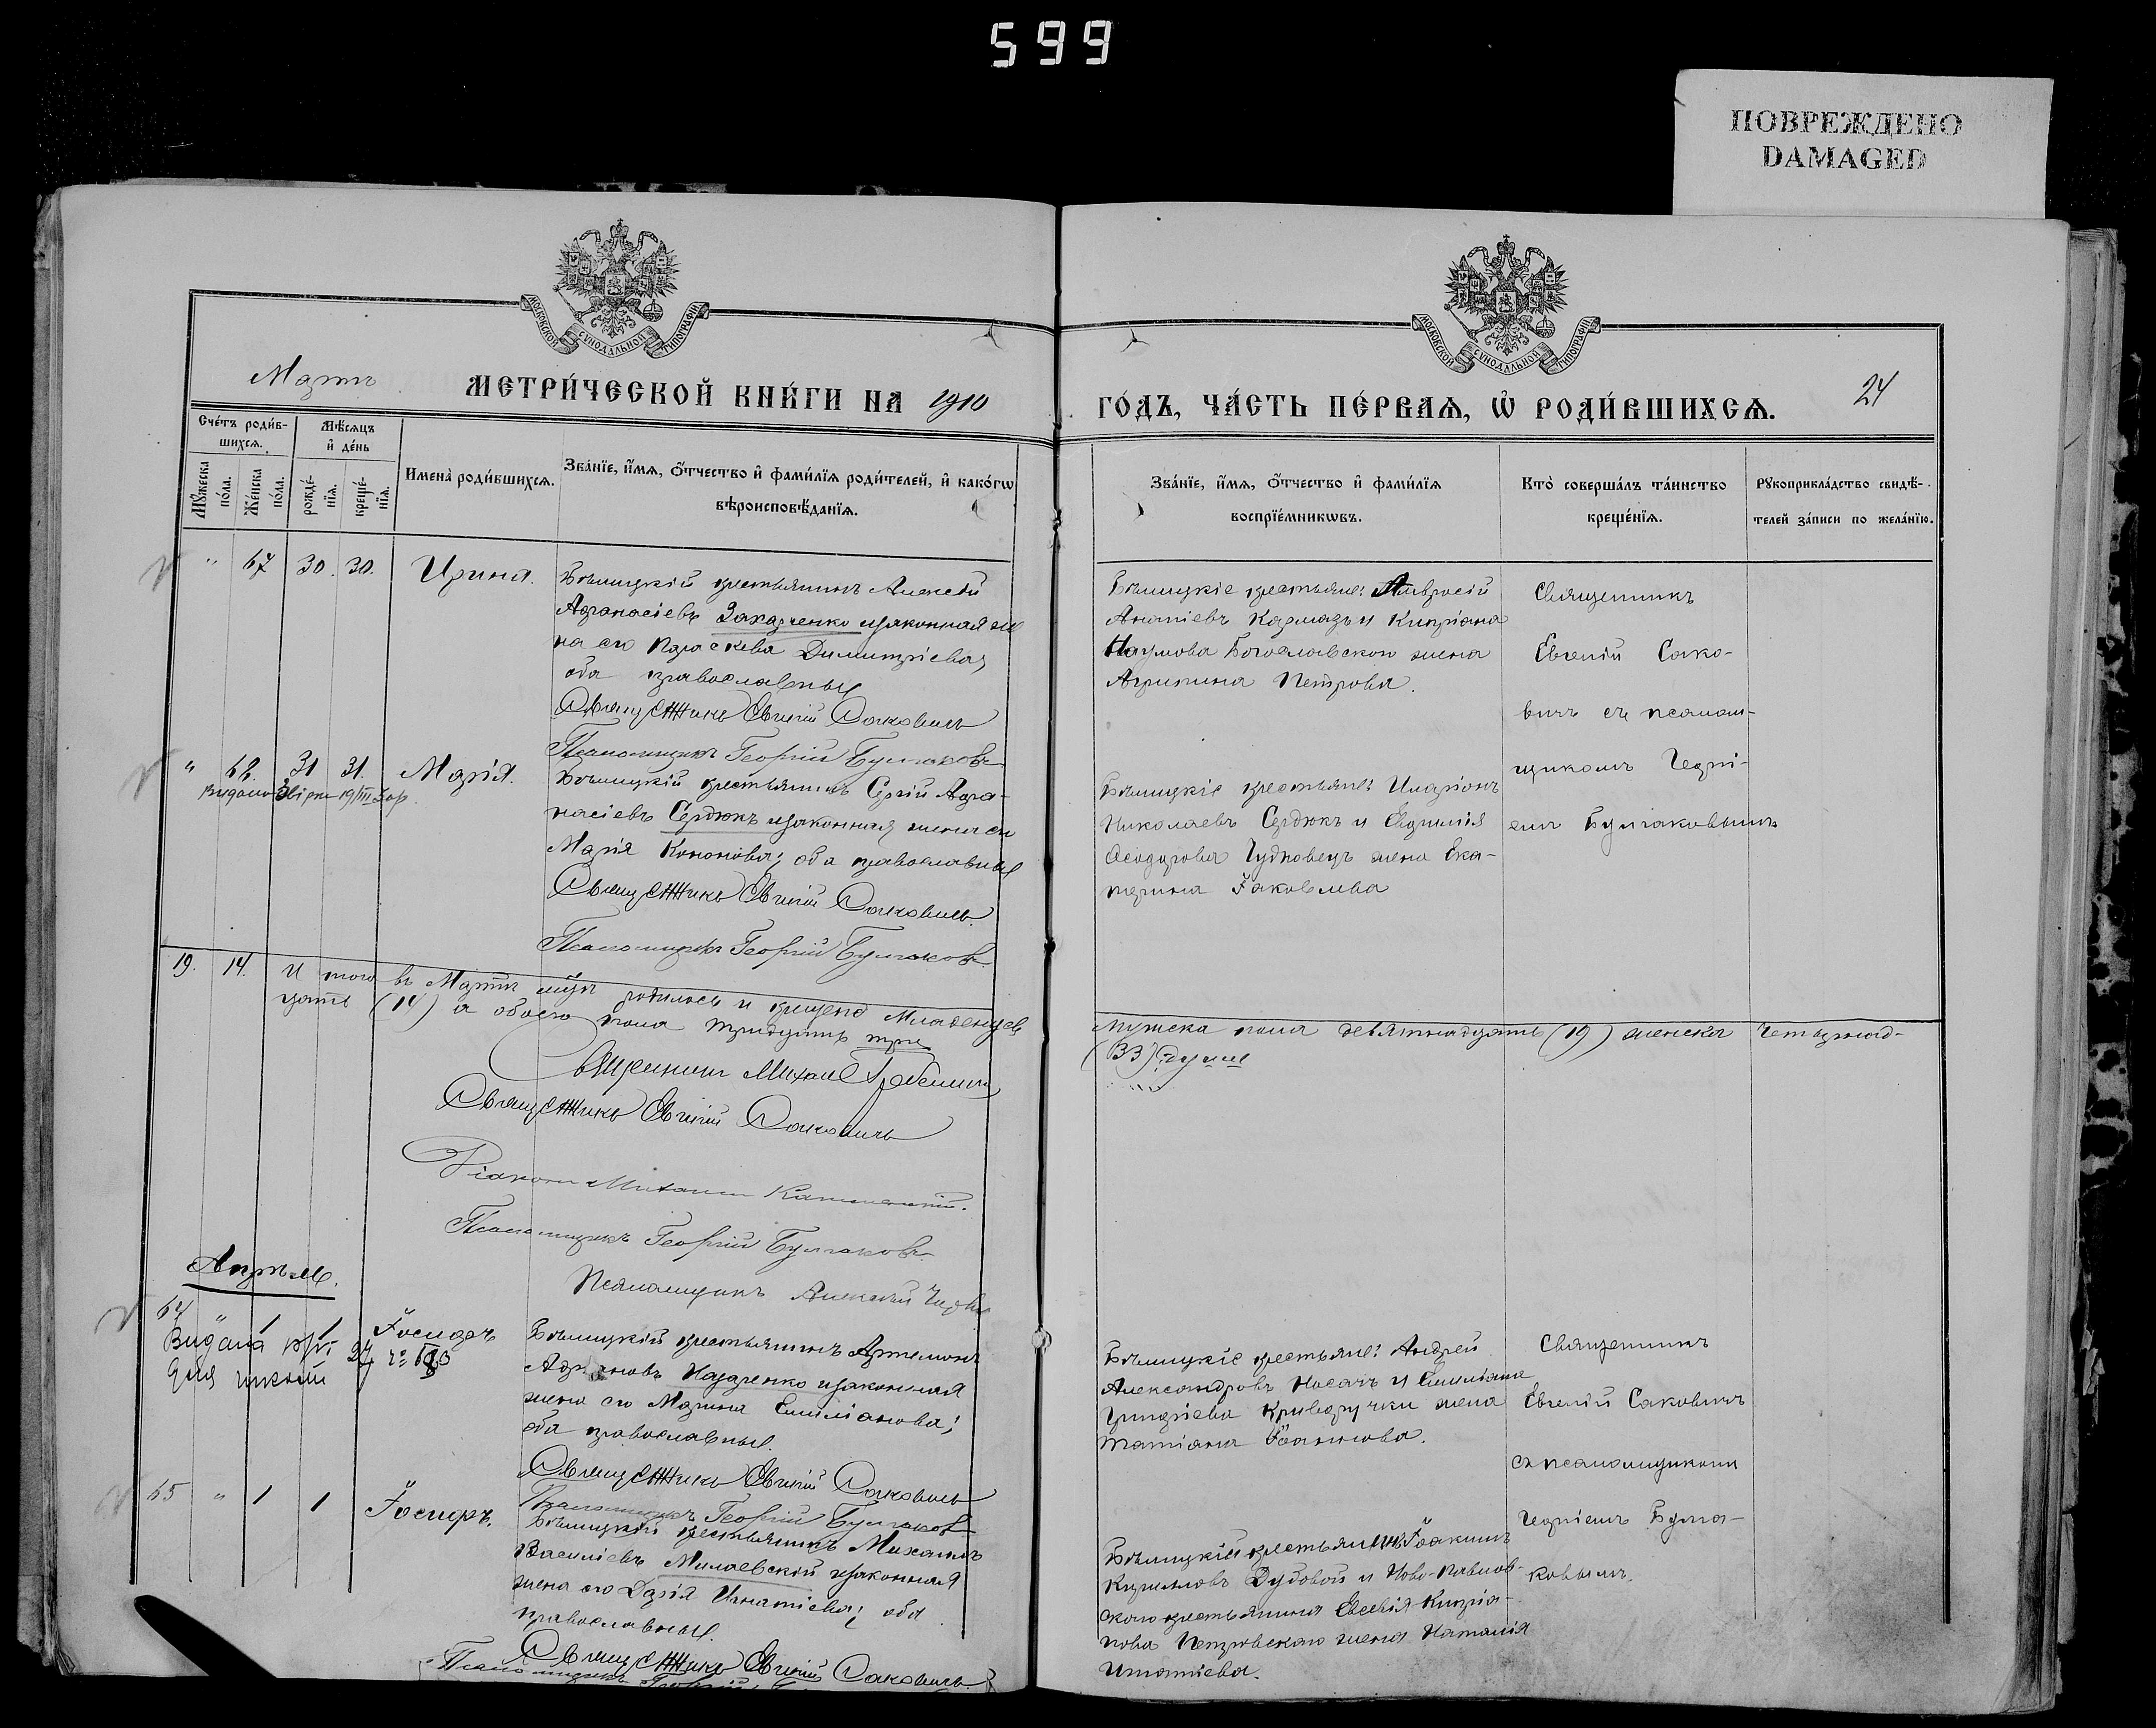 599
ПОВРЕЖДЕНО
DAMAGED
МОСКОВСКОЙ СѴНОДАЛЬНОЙ ТИПОГРАФІИ
МОСКОВСКОЙ СѴНОДАЛЬНОЙ ТИПОГРАФІИ
Мартъ
МЕТРИ́ЧЕСКОЙ КНИ́ГИ НА 1910
ГО́ДЪ, ЧА́СТЬ ПЕ́РВАѦ, Ѽ РОДИ́ВШИХСѦ.
24
Сче́тъ роди́в-
шихсѧ.
Мѣ́сѧцъ
и҆ де́нь
Мꙋ́жеска
по́ла.
Же́нска
по́ла.
рожде́-
нїѧ.
креще́-
нїѧ.
Имена̀ роди́вшихсѧ.
Зва́нїе, и҆́мѧ, ѻ҆́тчество и҆ фами́лїѧ роди́телей, и҆ како́гѡ
вѣроисповѣ́данїѧ.
Зва́нїе, и҆́мѧ, ѻ҆́тчество и҆ фами́лїѧ
воспрїе́мникѡвъ.
Кто̀ соверша́лъ та́инство
креще́нїѧ.
Рꙋкоприкла́дство свидѣ́-
телей за́писи по жела́нїю.
" 67 30. 30. Ирина.
Бѣлицкій крестьянинъ Алексѣй
Аѳанасіевъ Захарченко изаконная же
на его Параскева Димитріева;
оба православные
Священникъ Евгеній Саковичъ
Псаломщикъ Георгій Булгаковъ
Бѣлицкіе крестьяне: Амвросій
Ананіевъ Кармазъ и Кипріана
Наумова Богославского жена
Агрипина Петрова.
Священникъ
Евгеній Сако-
вичъ съ псалом-
щикомъ Георгі-
емъ Булгаковымъ
" 68. 31 31. Марія.
Бѣлицкій крестьянинъ Сергій Аѳа-
насіевъ Сердюкъ изаконная жена его
Марія Кононова; оба православные
Священникъ Евгеній Саковичъ
Псаломщикъ Георгій Булгаковъ
Бѣлицкіе крестьяне: Иларіонъ
Николаевъ Сердюкъ и
Ѳеодорова Чудновецъ жена Ека-
терина Іаковлева
19. 14. И того въ Мартѣ мцѣ родилось и крещено младенцевъ
мужска пола девятнадцать (19) женска четырнад-
цать (14) а обоего пола тридцать три
(33) души
Священникъ Евгеній Саковичъ
Діаконъ Михаилъ
Псаломщикъ Георгій Булгаковъ
Псаломщикъ Алексій
Апрѣль.
64 " 1 1
Видана
для школи
Бѣлицкій крестьянинъ Артемонъ
Назаренко изаконная
жена его Марина Емиліанова;
оба православные.
Священникъ Евгеній Саковичъ
Псаломщикъ Георгій Булгаковъ
Бѣлицкіе крестьяне: Андрей
Александровъ Носачъ и Емиліана
Григоріева Криворучки жена
Татіана Іоаннова.
Священникъ
Евгеній Саковичъ
съ псаломщикомъ
Георгіемъ Булга-
ковымъ.
65 " 1 1 Іосифъ.
Бѣлицкій крестьянинъ Михаилъ
Василіевъ Милаевскій изаконная
жена его Дарія Игнатіева; оба
православные.
Священникъ Евгеній Саковичъ
Бѣлицкій крестьянинъ Іоакимъ
Кирилловъ Дубовой и Ново-Павлов-
скаго крестьянина Евсевія Кипріа-
нова Петровскаго жена Наталія
Игнатіева.